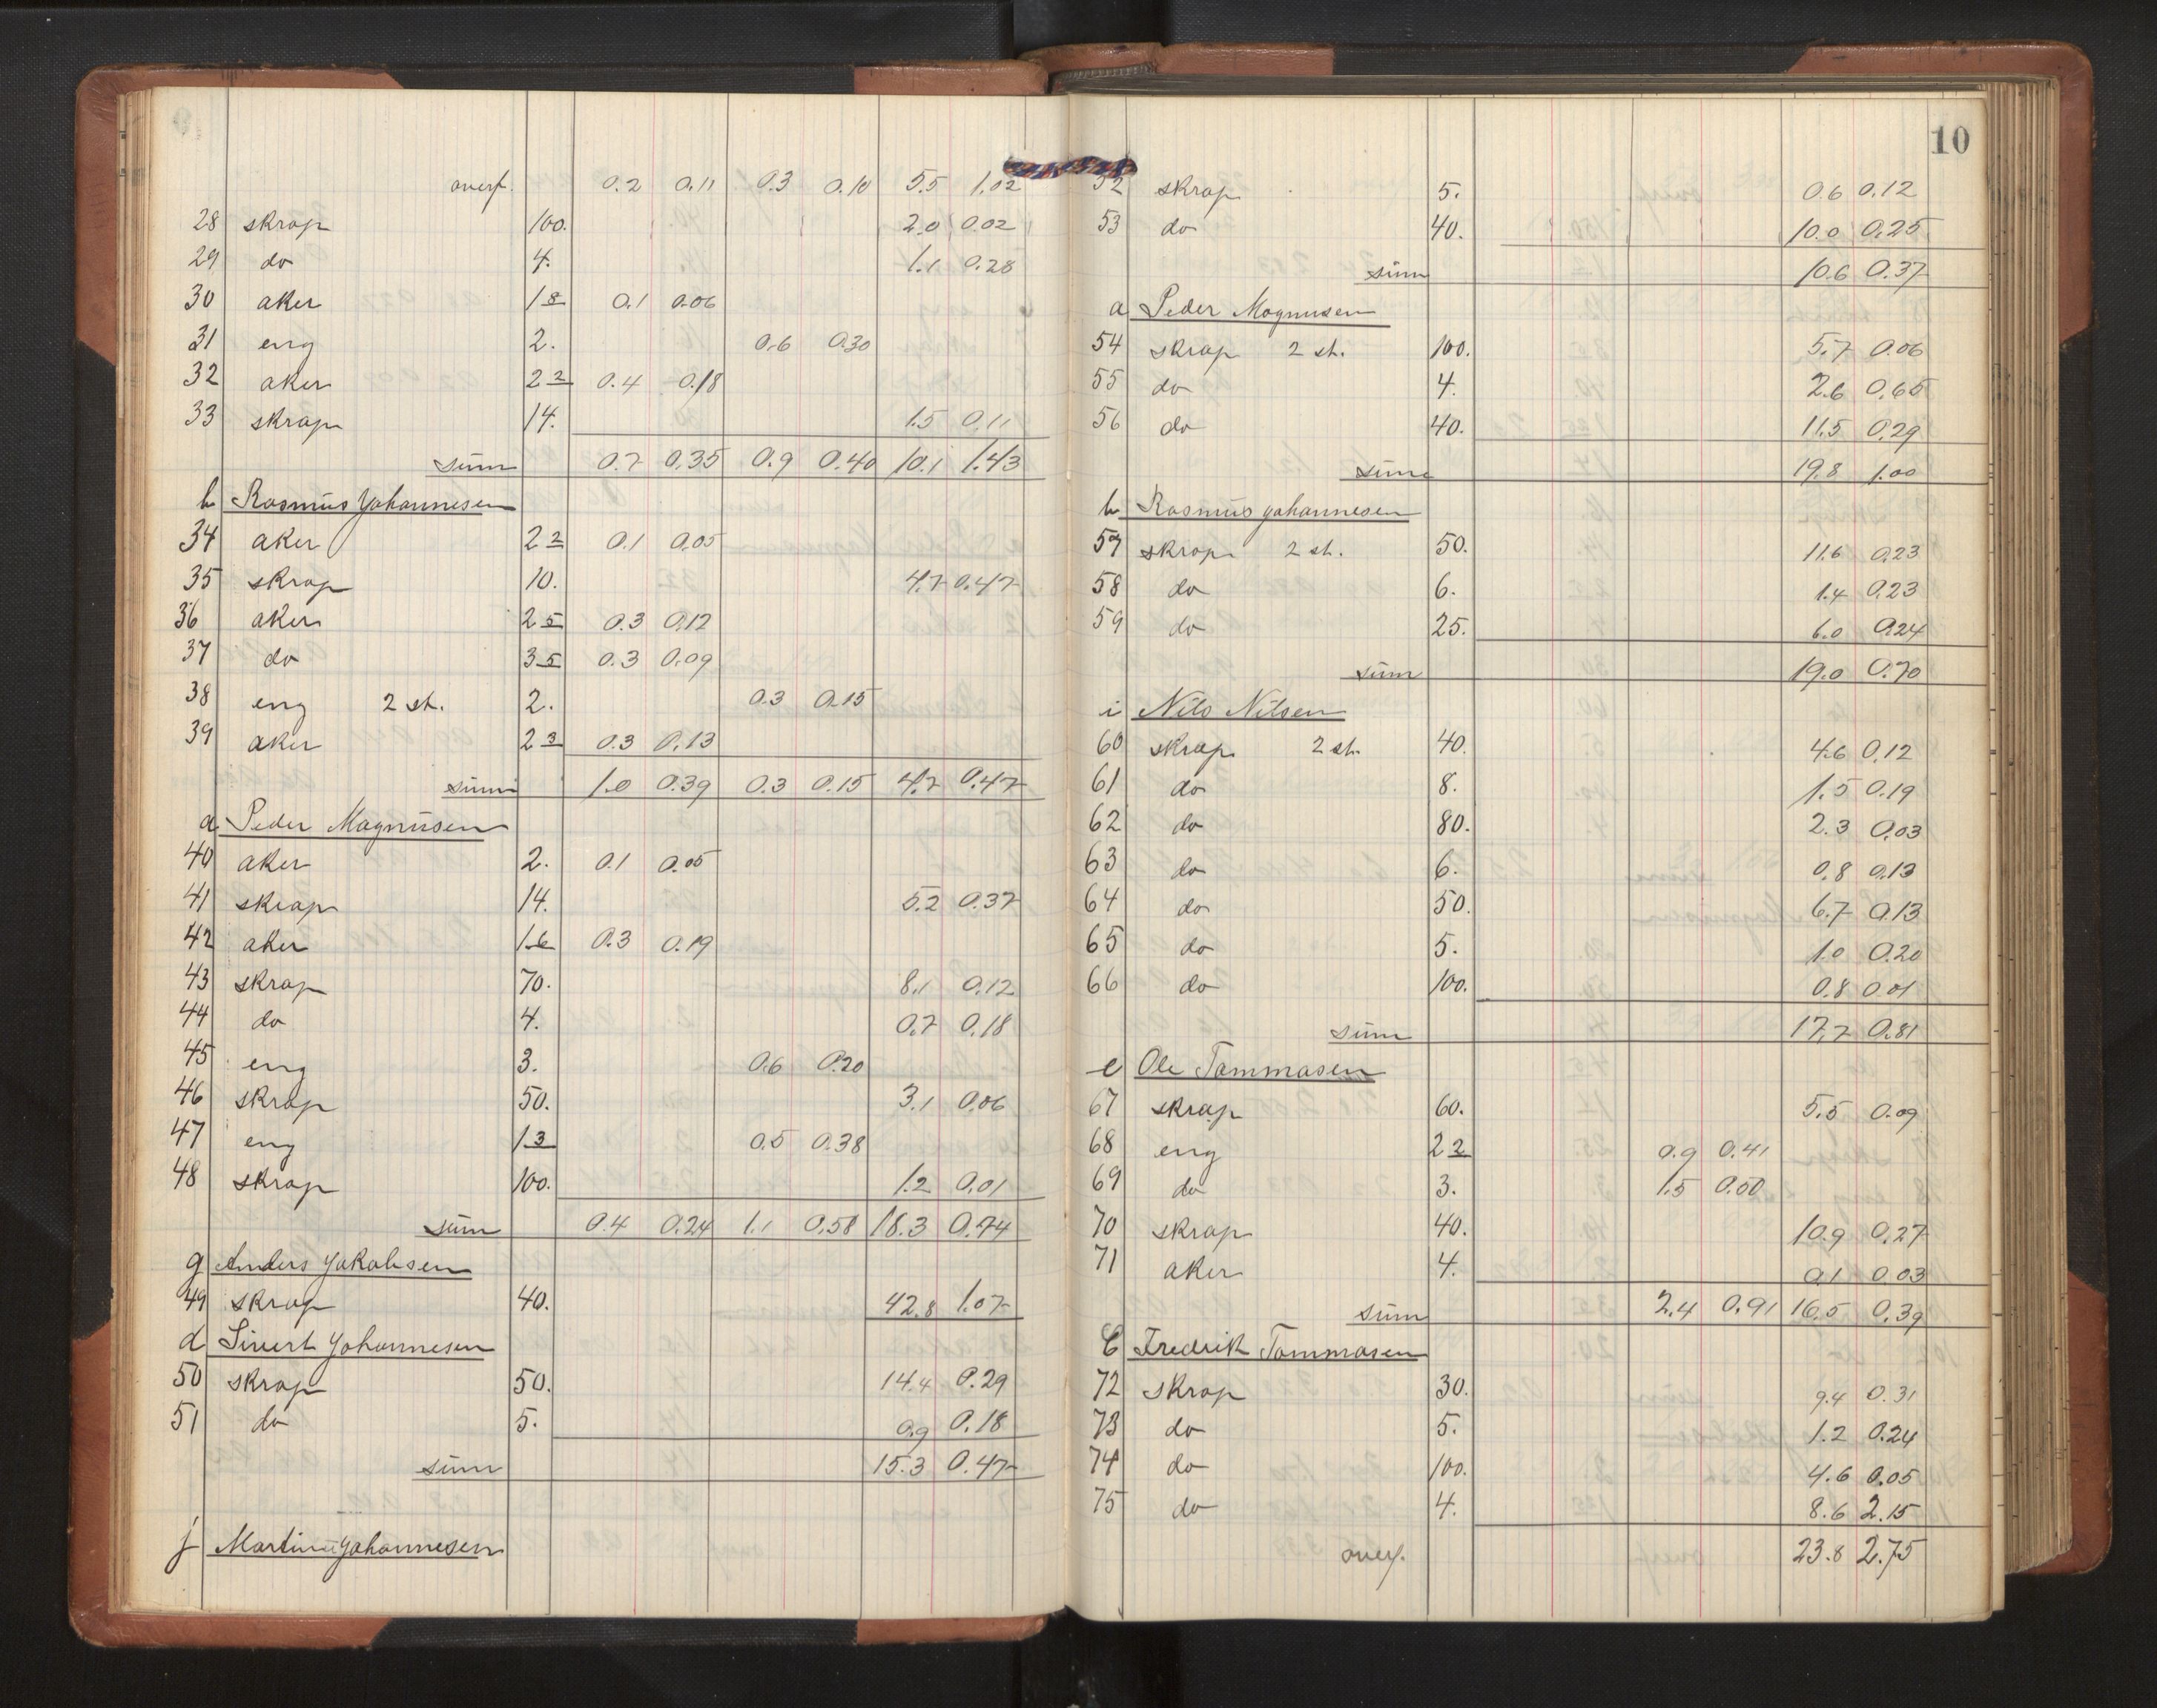 overf. 0.2 0.11 0.3 0.10 5.5 1.02
28 skrap 100. 2.0 0.02
29 do 4. 1.1 0.28
30 aker 1 8 0.1 0.06
31 eng 2. 0.6 0.30
32 aker 2 2 0.4 0.18
33 skrap 14. 1.5 0.11
sum 0.7 0.35 0.9 0.40 10.1 1.43
b Rasmus Johannesen
34 aker 2 2 0.1 0.05
35 skrap 10. 4.7 0.47
36 aker 2 5 0.3 0.12
37 do 3 5 0.3 0.09
38 eng 2 st. 2. 0.3 0.15
39 aker 2 3 0.3 0.13
sum 1.0 0.39 0.3 0.15 4.7 0.47
a Peder Magnusen
40 aker 2. 0.1 0.05
41 skrap 14. 5.2 0.37
42 aker 1 6 0.3 0.19
43 skrap 70. 8.1 0.12
44 do 4. 0.7 0.18
45 eng 3. 0.6 0.20
46 skrap 50. 3.1 0.06
47 eng 1 3 0.5 0.38
48 skrap 100. 1.2 0.01
sum 0.4 0.24 1.1 0.58 18.3 0.74
g Anders Jakobsen
49 skrap 40. 42.8 1.07
d Sivert Johannesen
50 skrap 50. 14.4 0.29
51 do 5. 0.9 0.18
sum 15.3 0.47
j Martinus Johannesen
10
52 skrap 5. 0.6 0.12
53 do 40. 10.0 0.25
sum 10.6 0.37
a Peder Magnusen
54 skrap 2 st. 100. 5.7 0.06
55 do 4. 2.6 0.65
56 do 40. 11.5 0.29
sum 19.8 1.00
b Rasmus Johannesen
57 skrap 2 st. 50. 11.6 0.23
58 do 6. 1.4 0.23
59 do 25. 6.0 0.24
sum 19.0 0.70
i Nils Nilsen
60 skrap 2 st. 40. 4.6 0.12
61 do 8. 1.5 0.19
62 do 80. 2.3 0.03
63 do 6. 0.8 0.13
64 do 50. 6.7 0.13
65 do 5. 1.0 0.20
66 do 100. 0.8 0.01
sum 17.7 0.81
e Ole Tommasen
67 skrap 60. 5.5 0.09
68 eng 2 2 0.9 0.41
69 do 3. 1.5 0.50
70 skrap 40. 10.9 0.27
71 aker 4. 0.1 0.03
sum 2.4 0.91 16.5 0.39
C Fredrik Tommasen
72 skrap 30. 9.4 0.31
73 do 5. 1.2 0.24
74 do 100. 4.6 0.05
75 do 4. 8.6 2.15
overf. 23.8 2.75